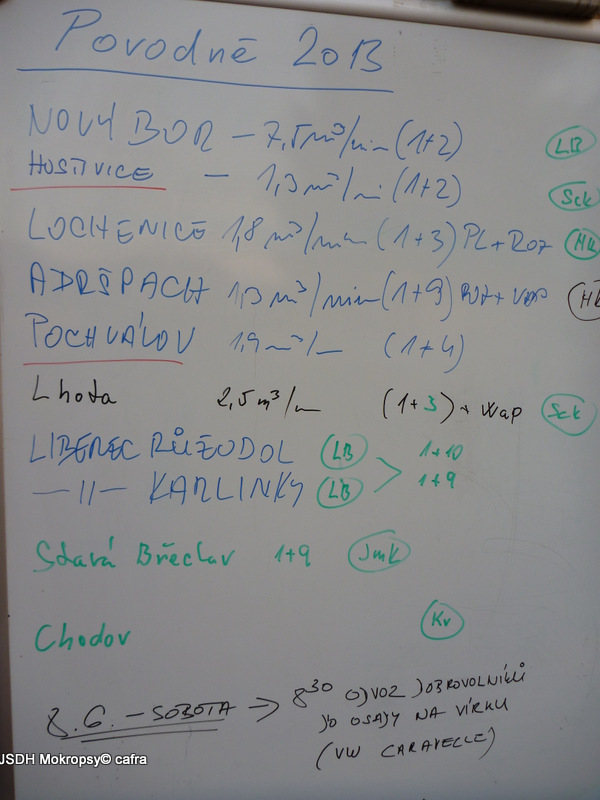 Povodně 2013
NOVÝ BOR – 7,5 m³/min (1+2) LB
HOSTIVICE – 1,3 m³/m (1+2) Sčk
LOCHENICE 1,8 m³/min (1+3) PL + ROZ HK
ADRŠPACH 1,3 m³/min (1+9) ROZ + VAP HK
POCHVÁLOV 1,9 m³/m (1+4)
Lhota 2,5 m³/m (1+3) + Wap Sčk
LIBEREC RŮŽODOL LB 1+10
—II— KARLINKY LB 1+9
Stará Břeclav 1+9 JmK
Chodov Kv
8.6. – SOBOTA → 8³⁰ ODVOZ DOBROVOLNÍKŮ
DO OSADY NA VÍRKU
(VW CARAVELLE)
JSDH Mokropsy© cafra